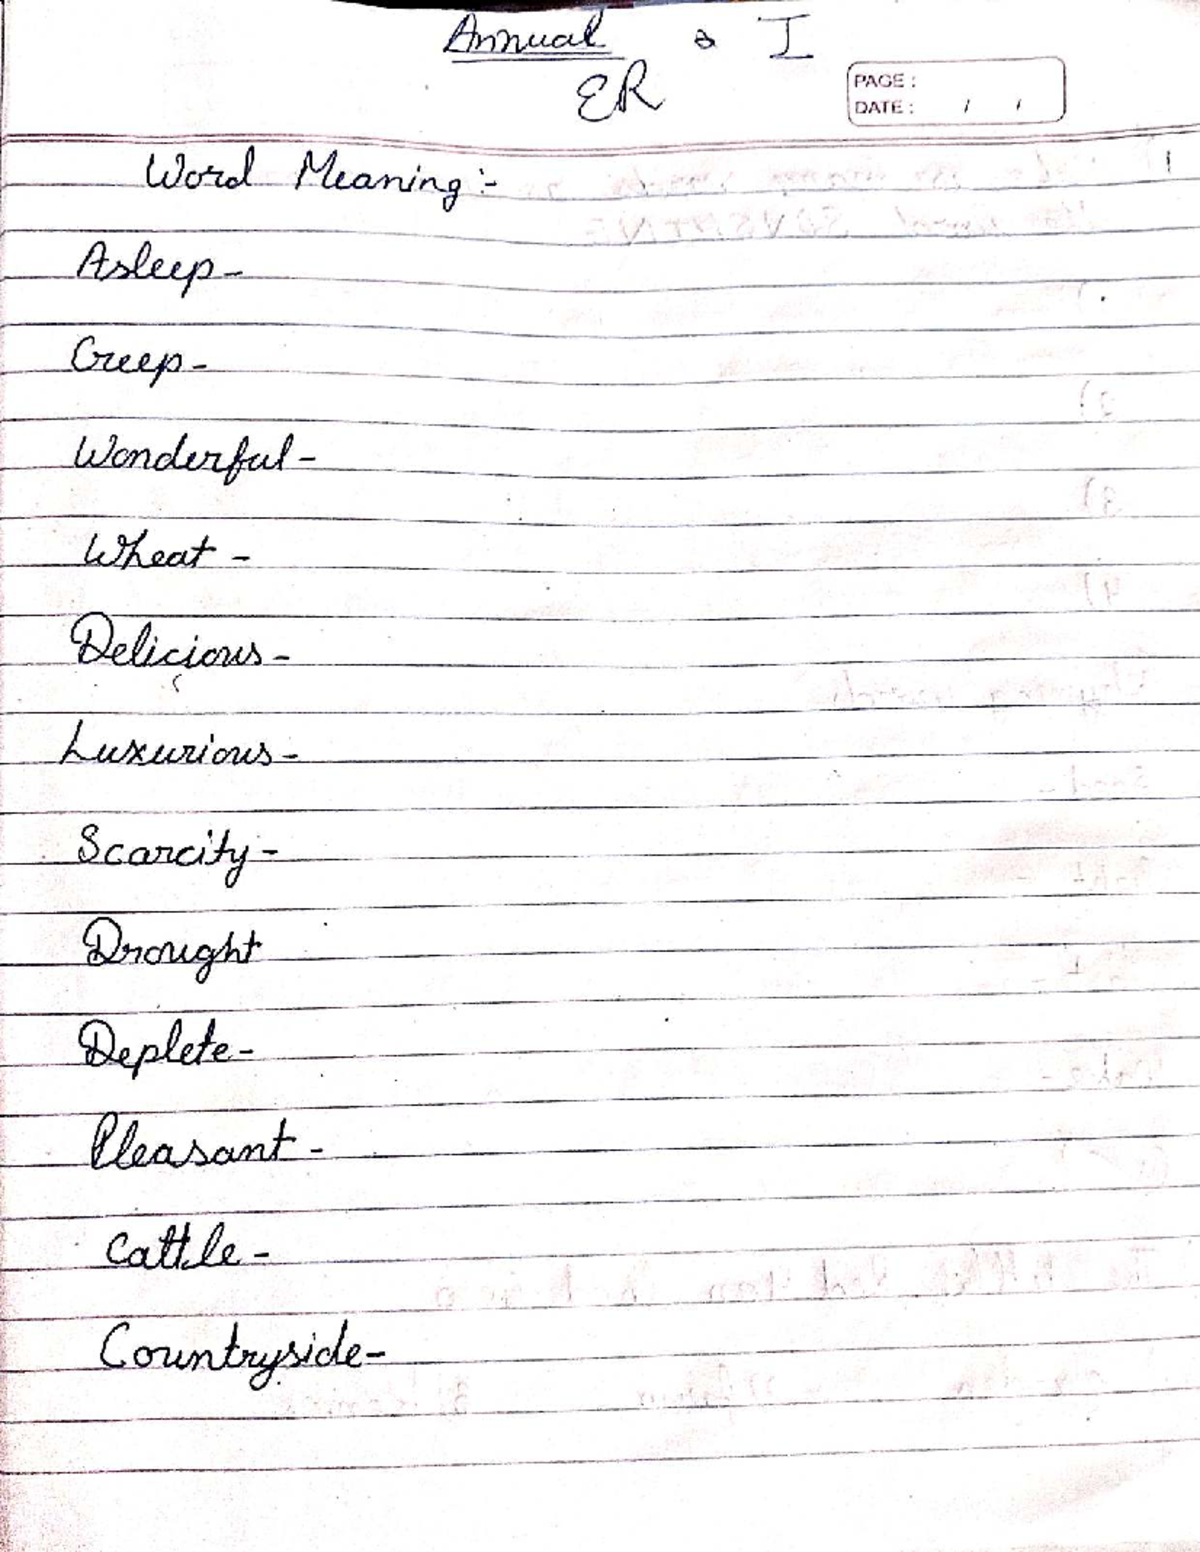 Annual I
ER
PAGE :
DATE : / /
Word Meaning :-
Asleep -
Creep -
Wonderful -
Wheat -
Delicious -
Luxurious -
Scarcity -
Drought
Deplete -
Pleasant -
Cattle -
Countryside -